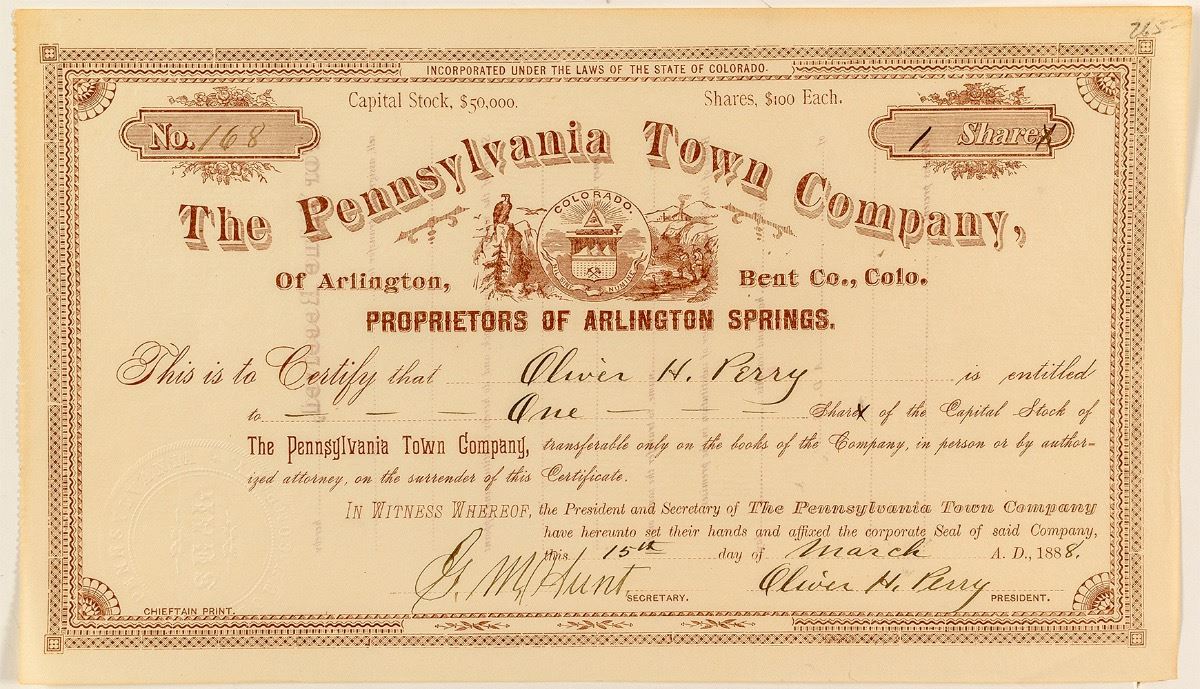 265-
INCORPORATED UNDER THE LAWS OF THE STATE OF COLORADO.
Capital Stock, $50,000.
Shares, $100 Each.
No. 168
1 Shares
The Pennsylvania Town Company,
COLORADO.
Of Arlington,
Bent Co., Colo.
PROPRIETORS OF ARLINGTON SPRINGS.
This is to Certify that Oliver H. Perry is entitled
to — — — One — — — — Shares of the Capital Stock of
The Pennsylvania Town Company, transferable only on the books of the Company, in person or by author-
ized attorney, on the surrender of this Certificate.
IN WITNESS WHEREOF, the President and Secretary of The Pennsylvania Town Company
have hereunto set their hands and affixed the corporate Seal of said Company,
this 15th day of March A. D., 1888.
G. M. Hunt SECRETARY.
Oliver H. Perry PRESIDENT.
CHIEFTAIN PRINT.
SEAL